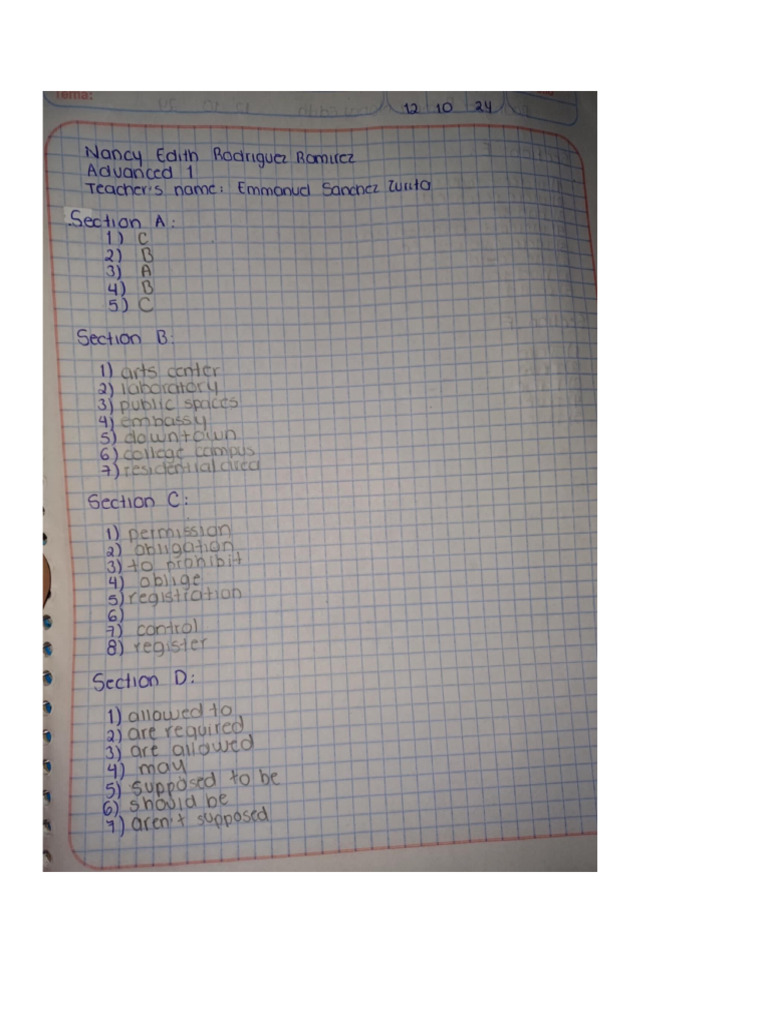 Tema:
12 10 24
Nancy Edith Rodriguez Ramirez
Advanced 1
Teacher's name: Emmanuel Sanchez Zurita
Section A:
1) C
2) B
3) A
4) B
5) C
Section B:
1) arts center
2) laboratory
3) public spaces
4) embassy
5) downtown
6) college campus
7) residential area
Section C:
1) permission
2) obligation
3) to prohibit
4) oblige
5) registration
6)
7) control
8) register
Section D:
1) allowed to
2) are required
3) are allowed
4) may
5) supposed to be
6) should be
7) aren't supposed